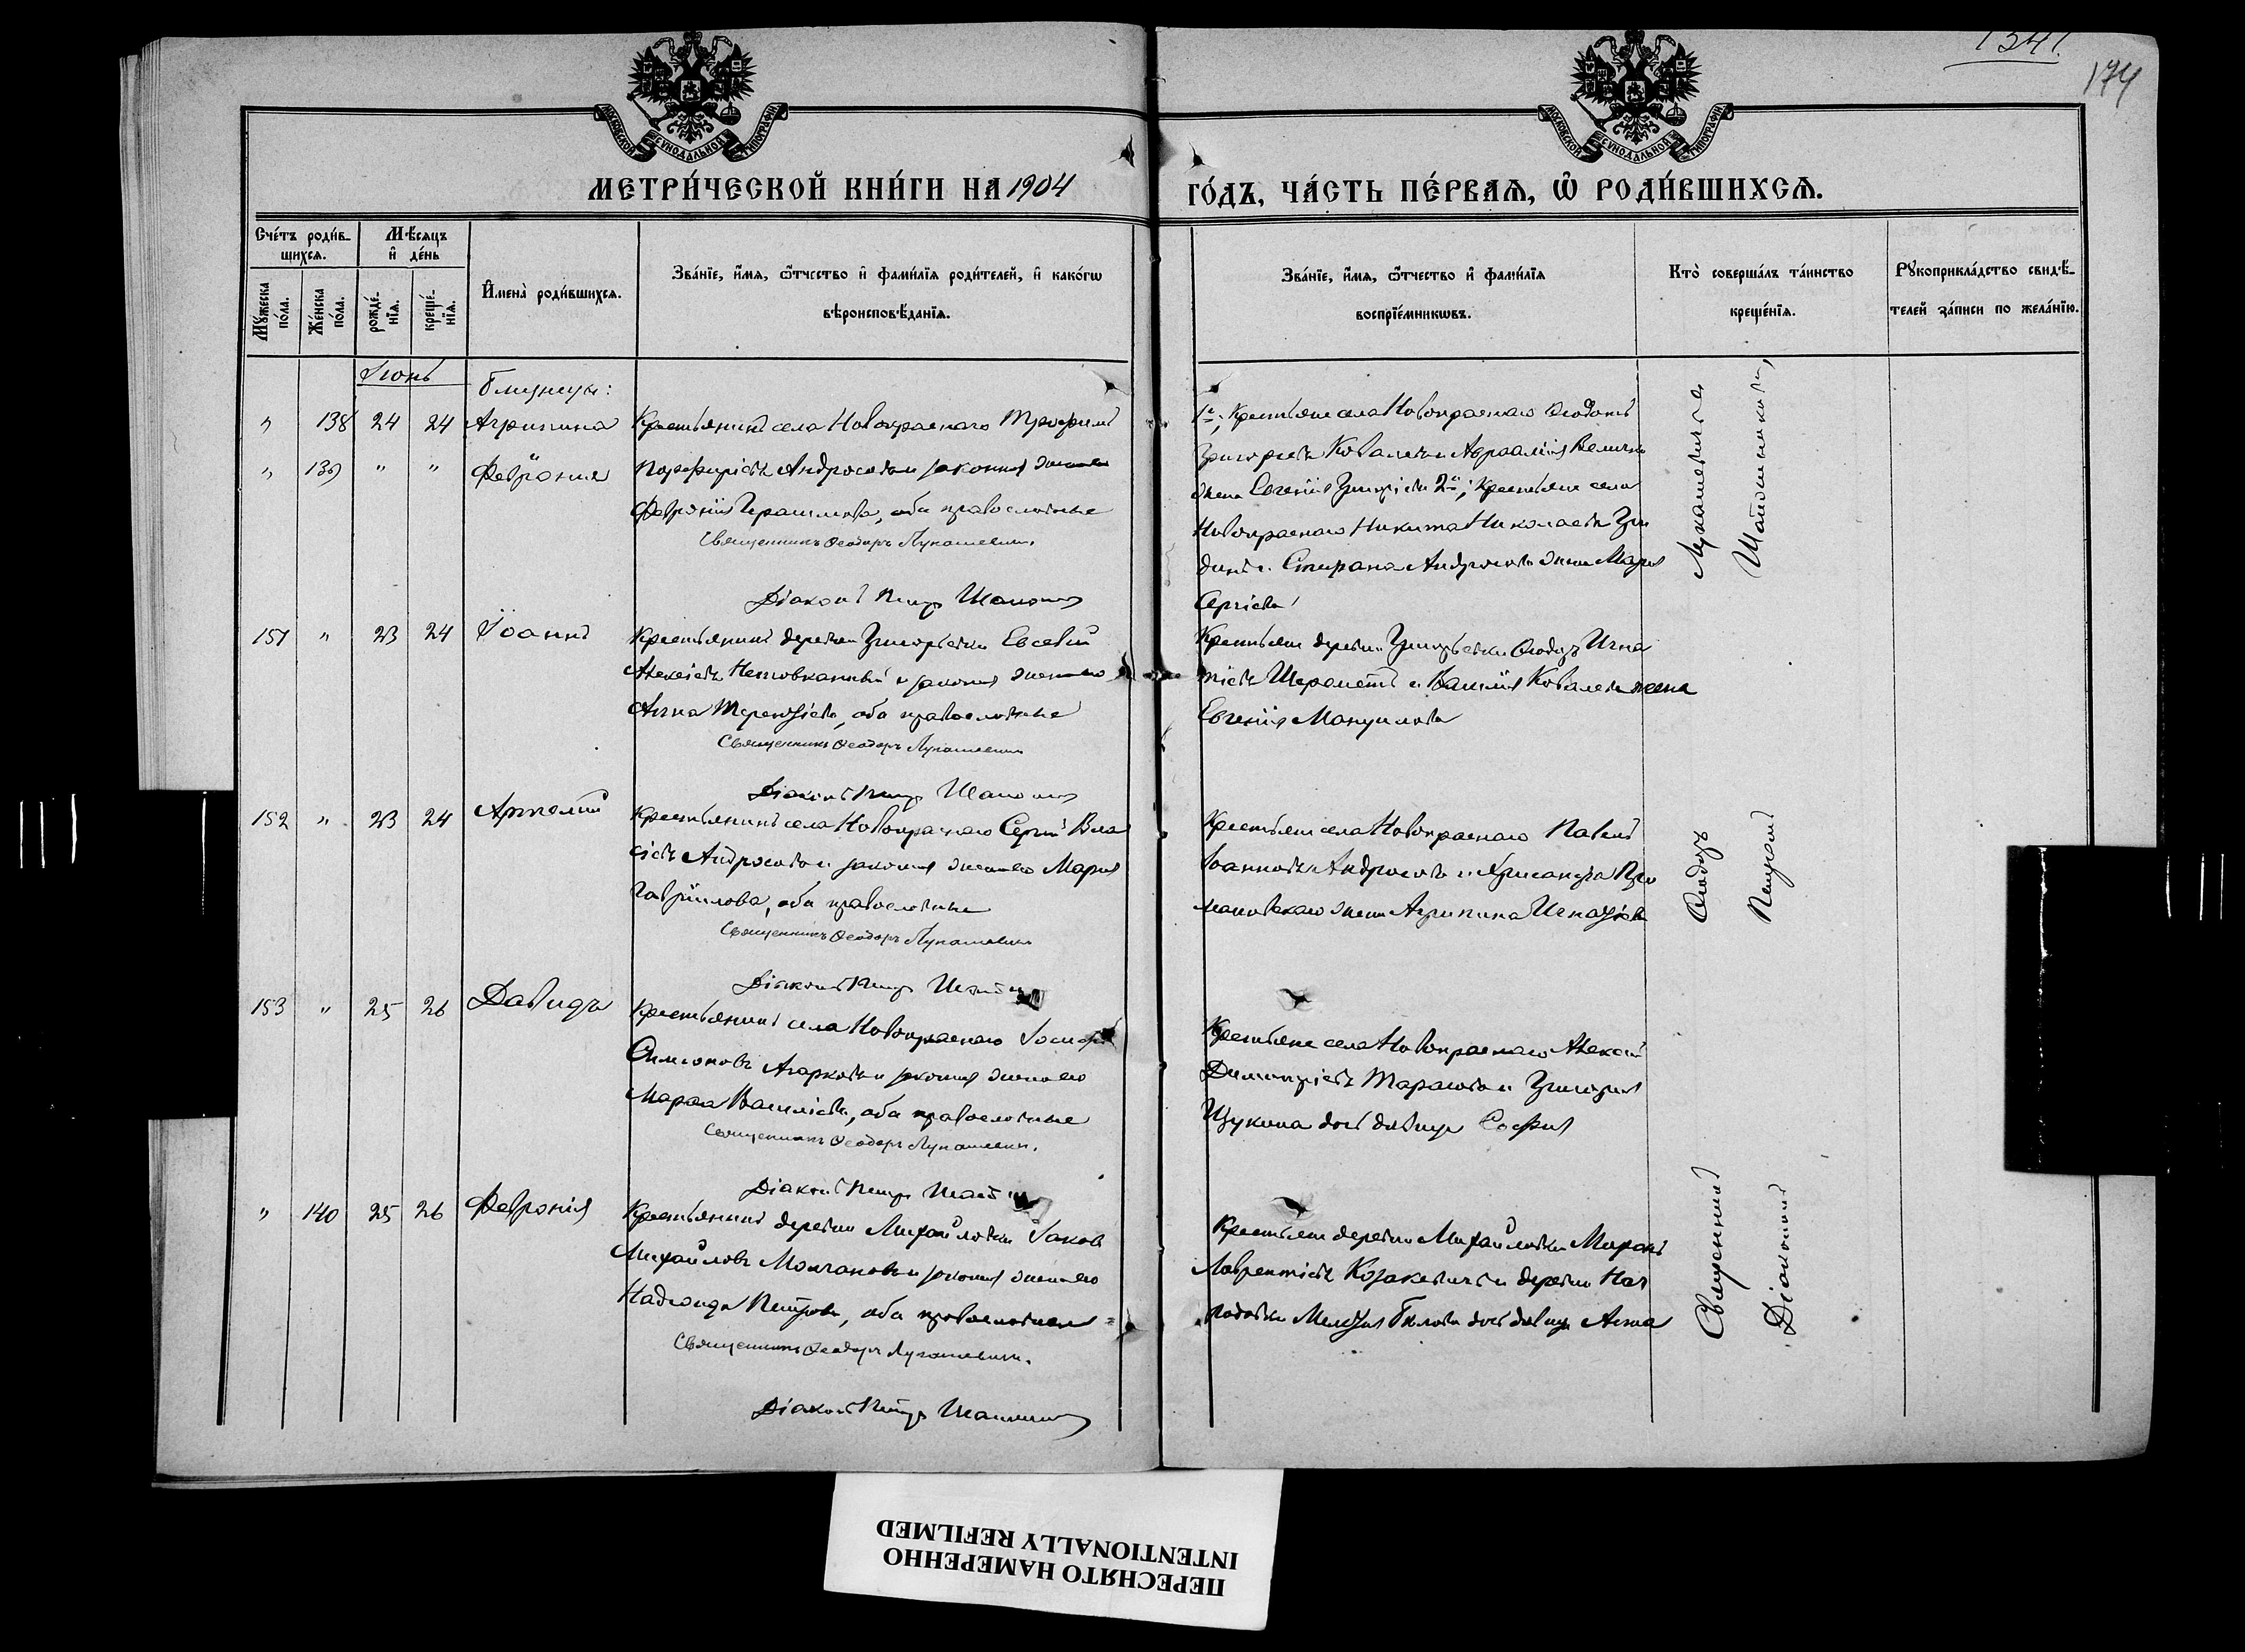 1341.
174
МОСКОВСКОЙ СѴНОДАЛЬНОЙ ТИПОГРАФІИ
МОСКОВСКОЙ СѴНОДАЛЬНОЙ ТИПОГРАФІИ
МЕТРИ́ЧЕСКОЙ КНИ́ГИ НА 1904 ГО́ДЪ, ЧА́СТЬ ПЕ́РВАЯ, Ѡ҆ РОДИ́ВШИХСЯ.
Сче́тъ роди́в-
щихся.
Мꙋ́жеска по́ла.
Же́нска по́ла.
Мѣ́сяцъ и҆ де́нь
рожде́-нїя.
креще́-нїя.
И҆мена̀ роди́вшихся.
Зва́нїе, и҆́мя, ѻ҆́тчество и҆ фами́лїя роди́телей, и҆ како́гѡ
вѣроисповѣ́данїя.
Зва́нїе, и҆́мя, ѻ҆́тчество и҆ фами́лїя
воспрїе́мникѡвъ.
Кто̀ соверша́лъ та́инство
креще́нїя.
Рꙋкоприкла́дство свидѣ́-
телей за́писи по жела́нїю.
Іюнь
Близнецы:
" 138 24 24 Агрипина
" 139 " " Феврония
Крестьянинъ села Новокраснаго Трофимъ
Порфиріевъ Андросовъ и законная жена его
Февронія Герасимова, оба православные
Священникъ Ѳеодоръ Лукашевичъ.
Діаконъ Петръ
1й, Крестьяне села Новокраснаго Ѳеодотъ
Григорьевъ Ковалевъ и Авраамія Величко
жена Евгенія Григоріева 2й, Крестьяне села
Новокраснаго Никита Николаевъ Гри
динъ и Спирана Андросова жена Марія
Сергіева
151 " 23 24 Іоаннъ
Крестьянинъ деревни Григорьевки Евсевій
Алексіевъ и законная жена его
Анна Терентіева, оба православные
Священникъ Ѳеодоръ Лукашевичъ
Діаконъ Петръ
Крестьяне деревни Григорьевки Ѳеодоръ Игна
тіевъ Шереметъ и Василія Ковалева жена
Евгенія Мануилова
152 " 23 24 Артемій
Крестьянинъ села Новокраснаго Сергій Вла
сіевъ Андросовъ и законная жена его Марія
Гавріилова, оба православные
Священникъ Ѳеодоръ Лукашевичъ
Діаконъ Петръ
Крестьяне села Новокраснаго Павелъ
Іоанновъ Андросовъ и Хрисанфа
жена Агрипина Игнатіева
153 " 25 26 Давидъ
Крестьянинъ села Новокраснаго Іосифъ
Симеоновъ Агарковъ и законная жена его
Марѳа Василіева, оба православные
Священникъ Ѳеодоръ Лукашевичъ.
Діаконъ Петръ
Крестьяне села Новокраснаго Алексій
Димитріевъ Тарасовъ и Григорія
Щукина дочь дѣвица Софія
" 140 25 26 Февронія
Крестьянинъ деревни Михайловки Іаковъ
Михайловъ Молчановъ и законная жена его
Надежда Петрова, оба православные
Священникъ Ѳеодоръ Лукашевичъ.
Діаконъ Петръ
Крестьяне деревни Михайловки Миронъ
Лаврентіевъ Козакевичъ и деревни
Бѣлова дочь дѣвица Анна
Священникъ Ѳеодоръ Лукашевичъ
Діаконъ Петръ
ПЕРЕСНЯТО НАМЕРЕННО
INTENTIONALLY REFILMED